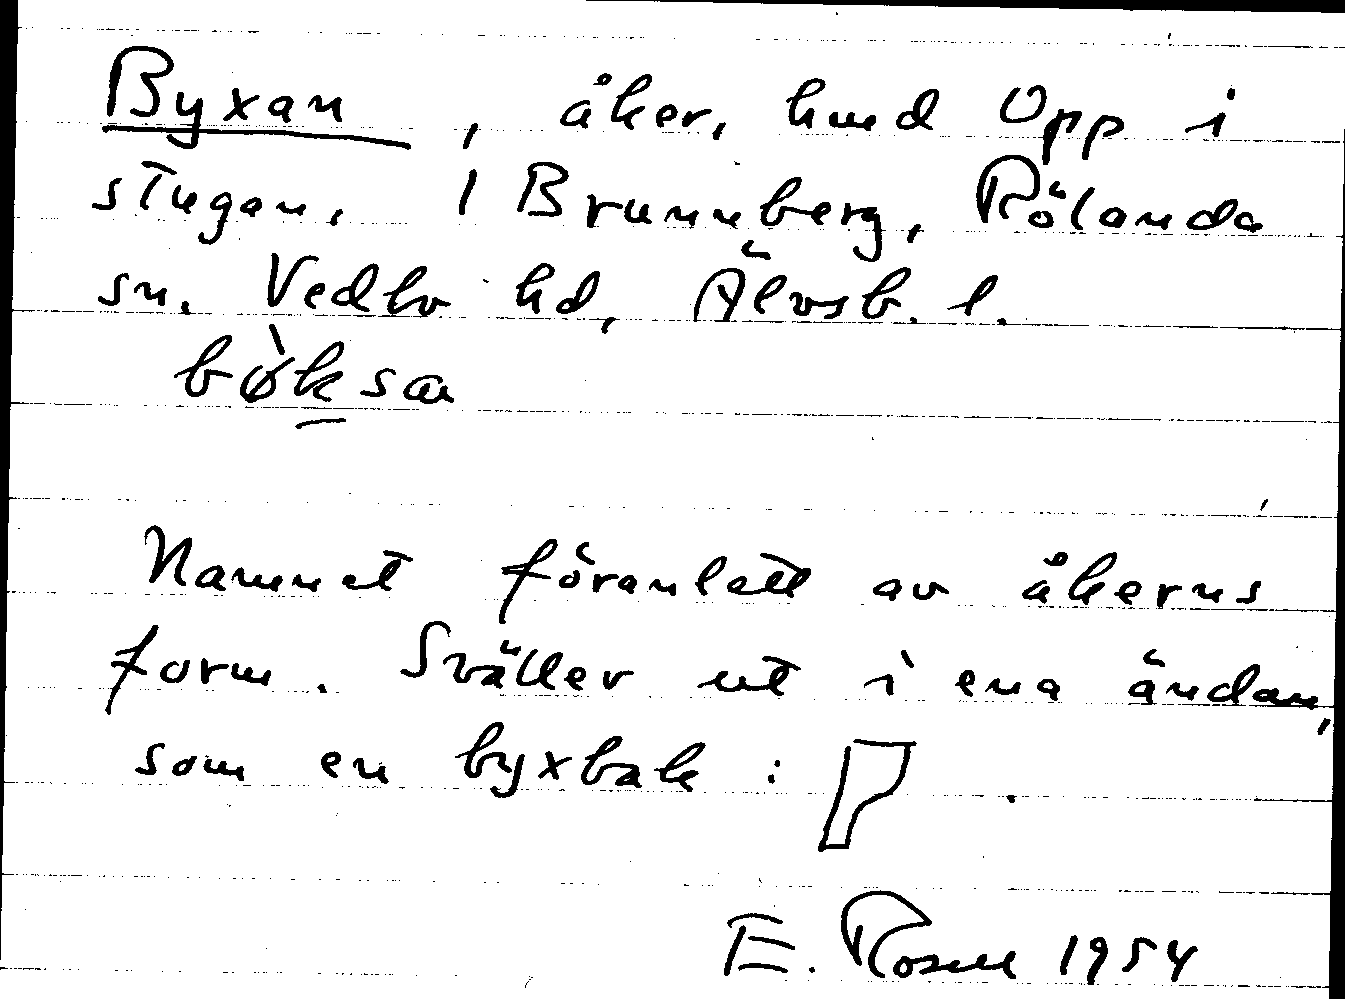 Byxan, åker, hmd Opp i
stugan, i Brunnberg, Rölanda
sn. Vedbo hd, Älvsb. l.
bø̀ksa
Namnet föranlett av åkerns
form. Sväller ut i ena ändan,
som en byxbak: .
E. Rosell 1954